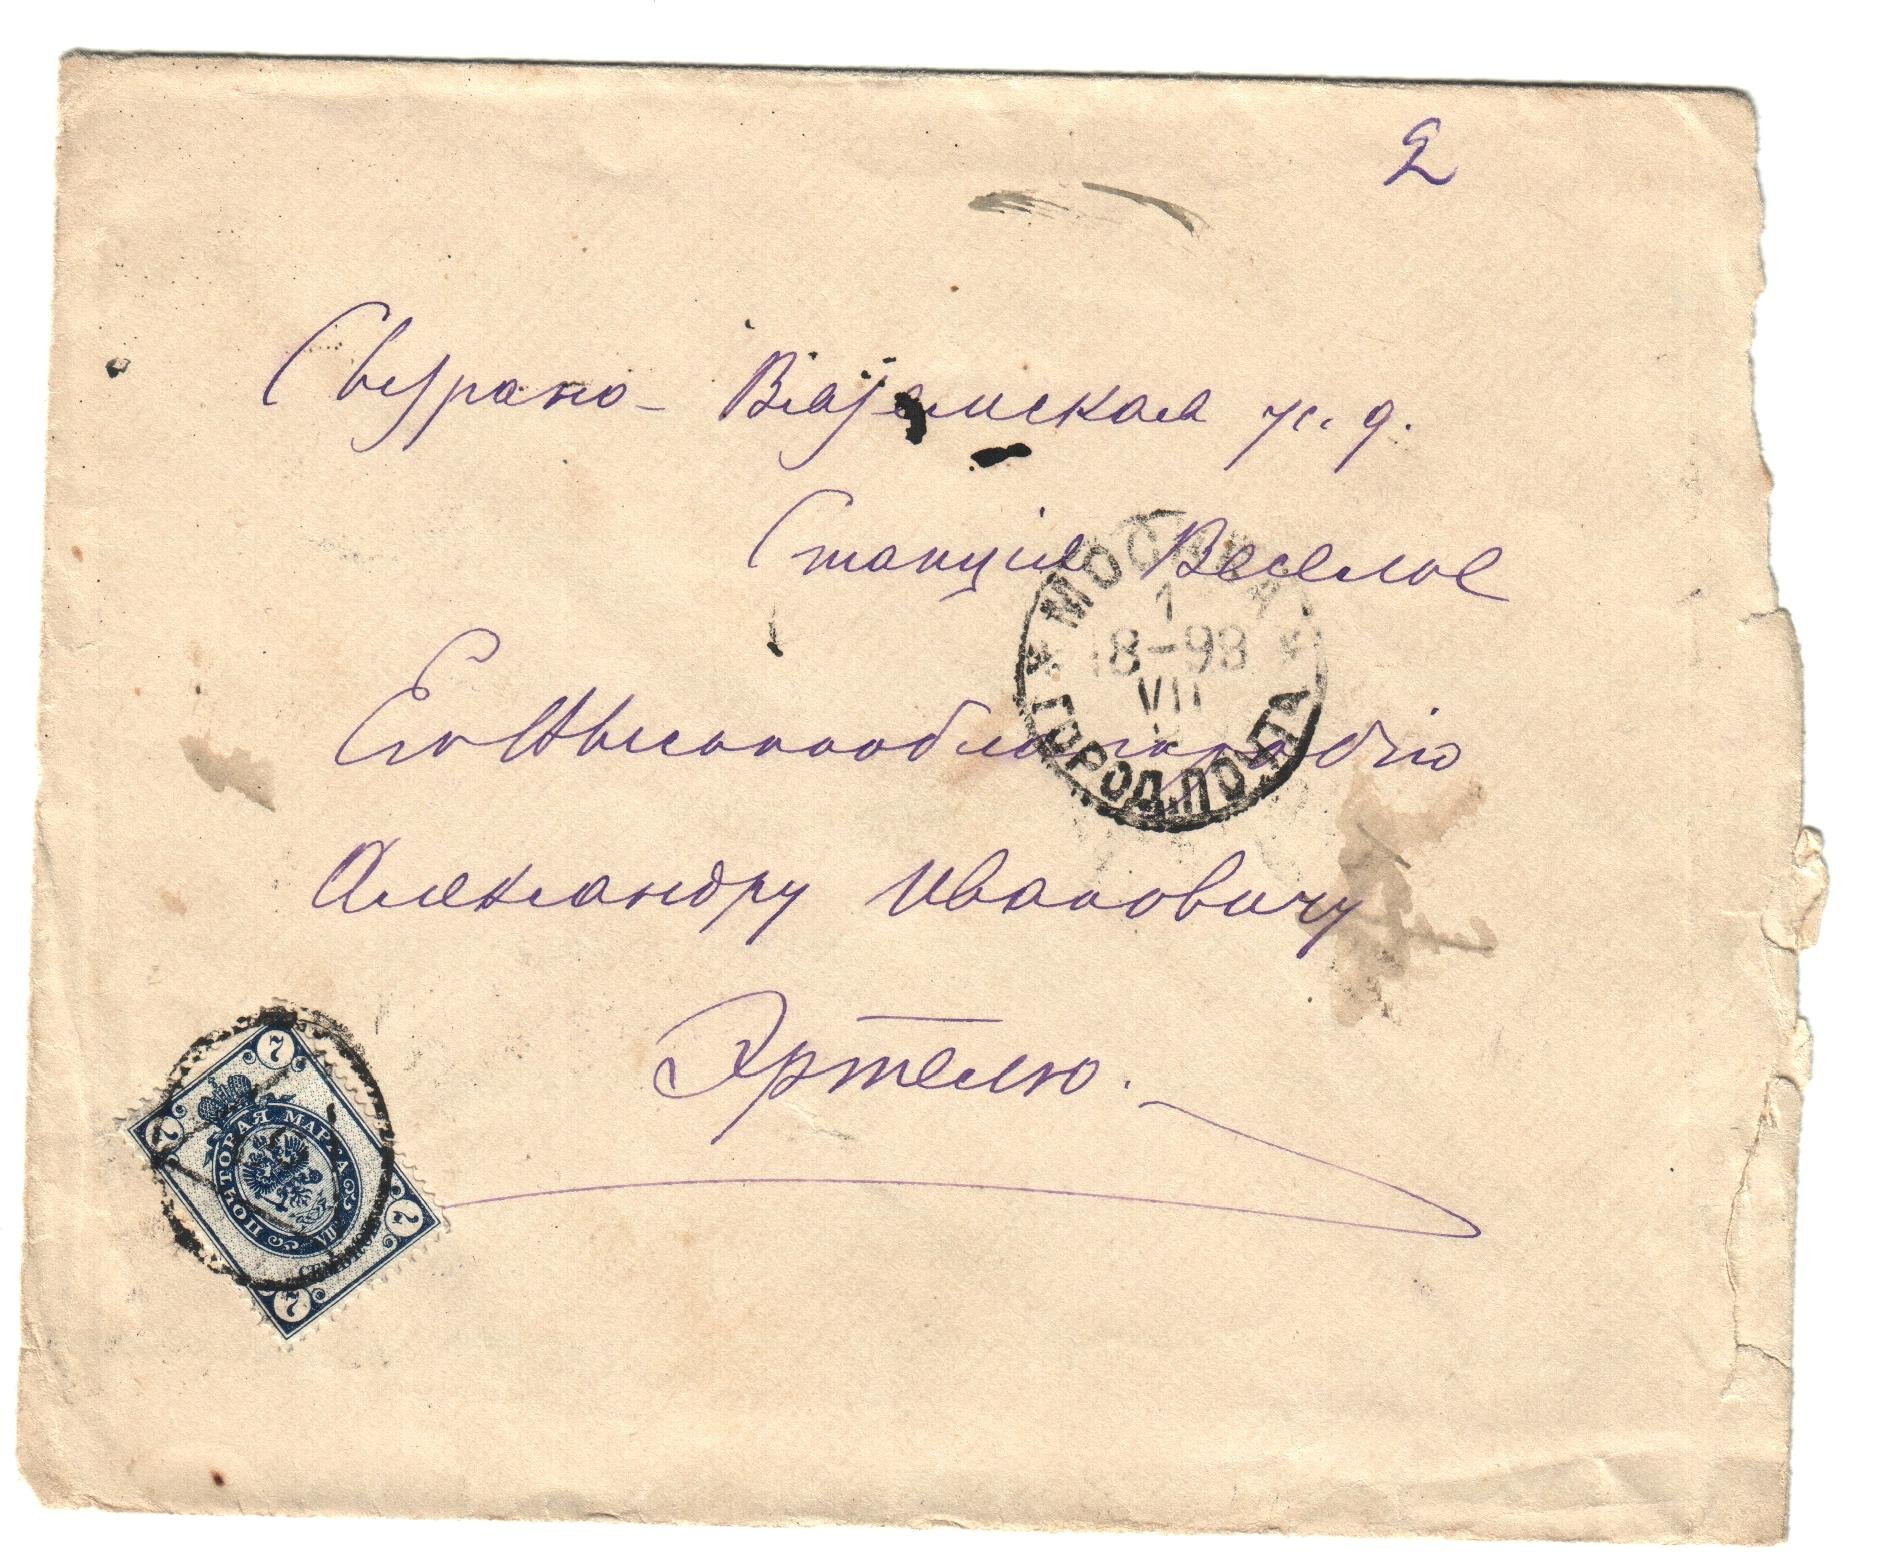 2
Сызрано-Вяземская ж. д.
Станція Веселое
МОСКВА
1
18-93
VII
ГОРОД. ПОЧТА
Его Высокоблагородію
Александру Ивановичу
Эртелю.
7
7
ПОЧТОВАЯ МАРКА
7
7